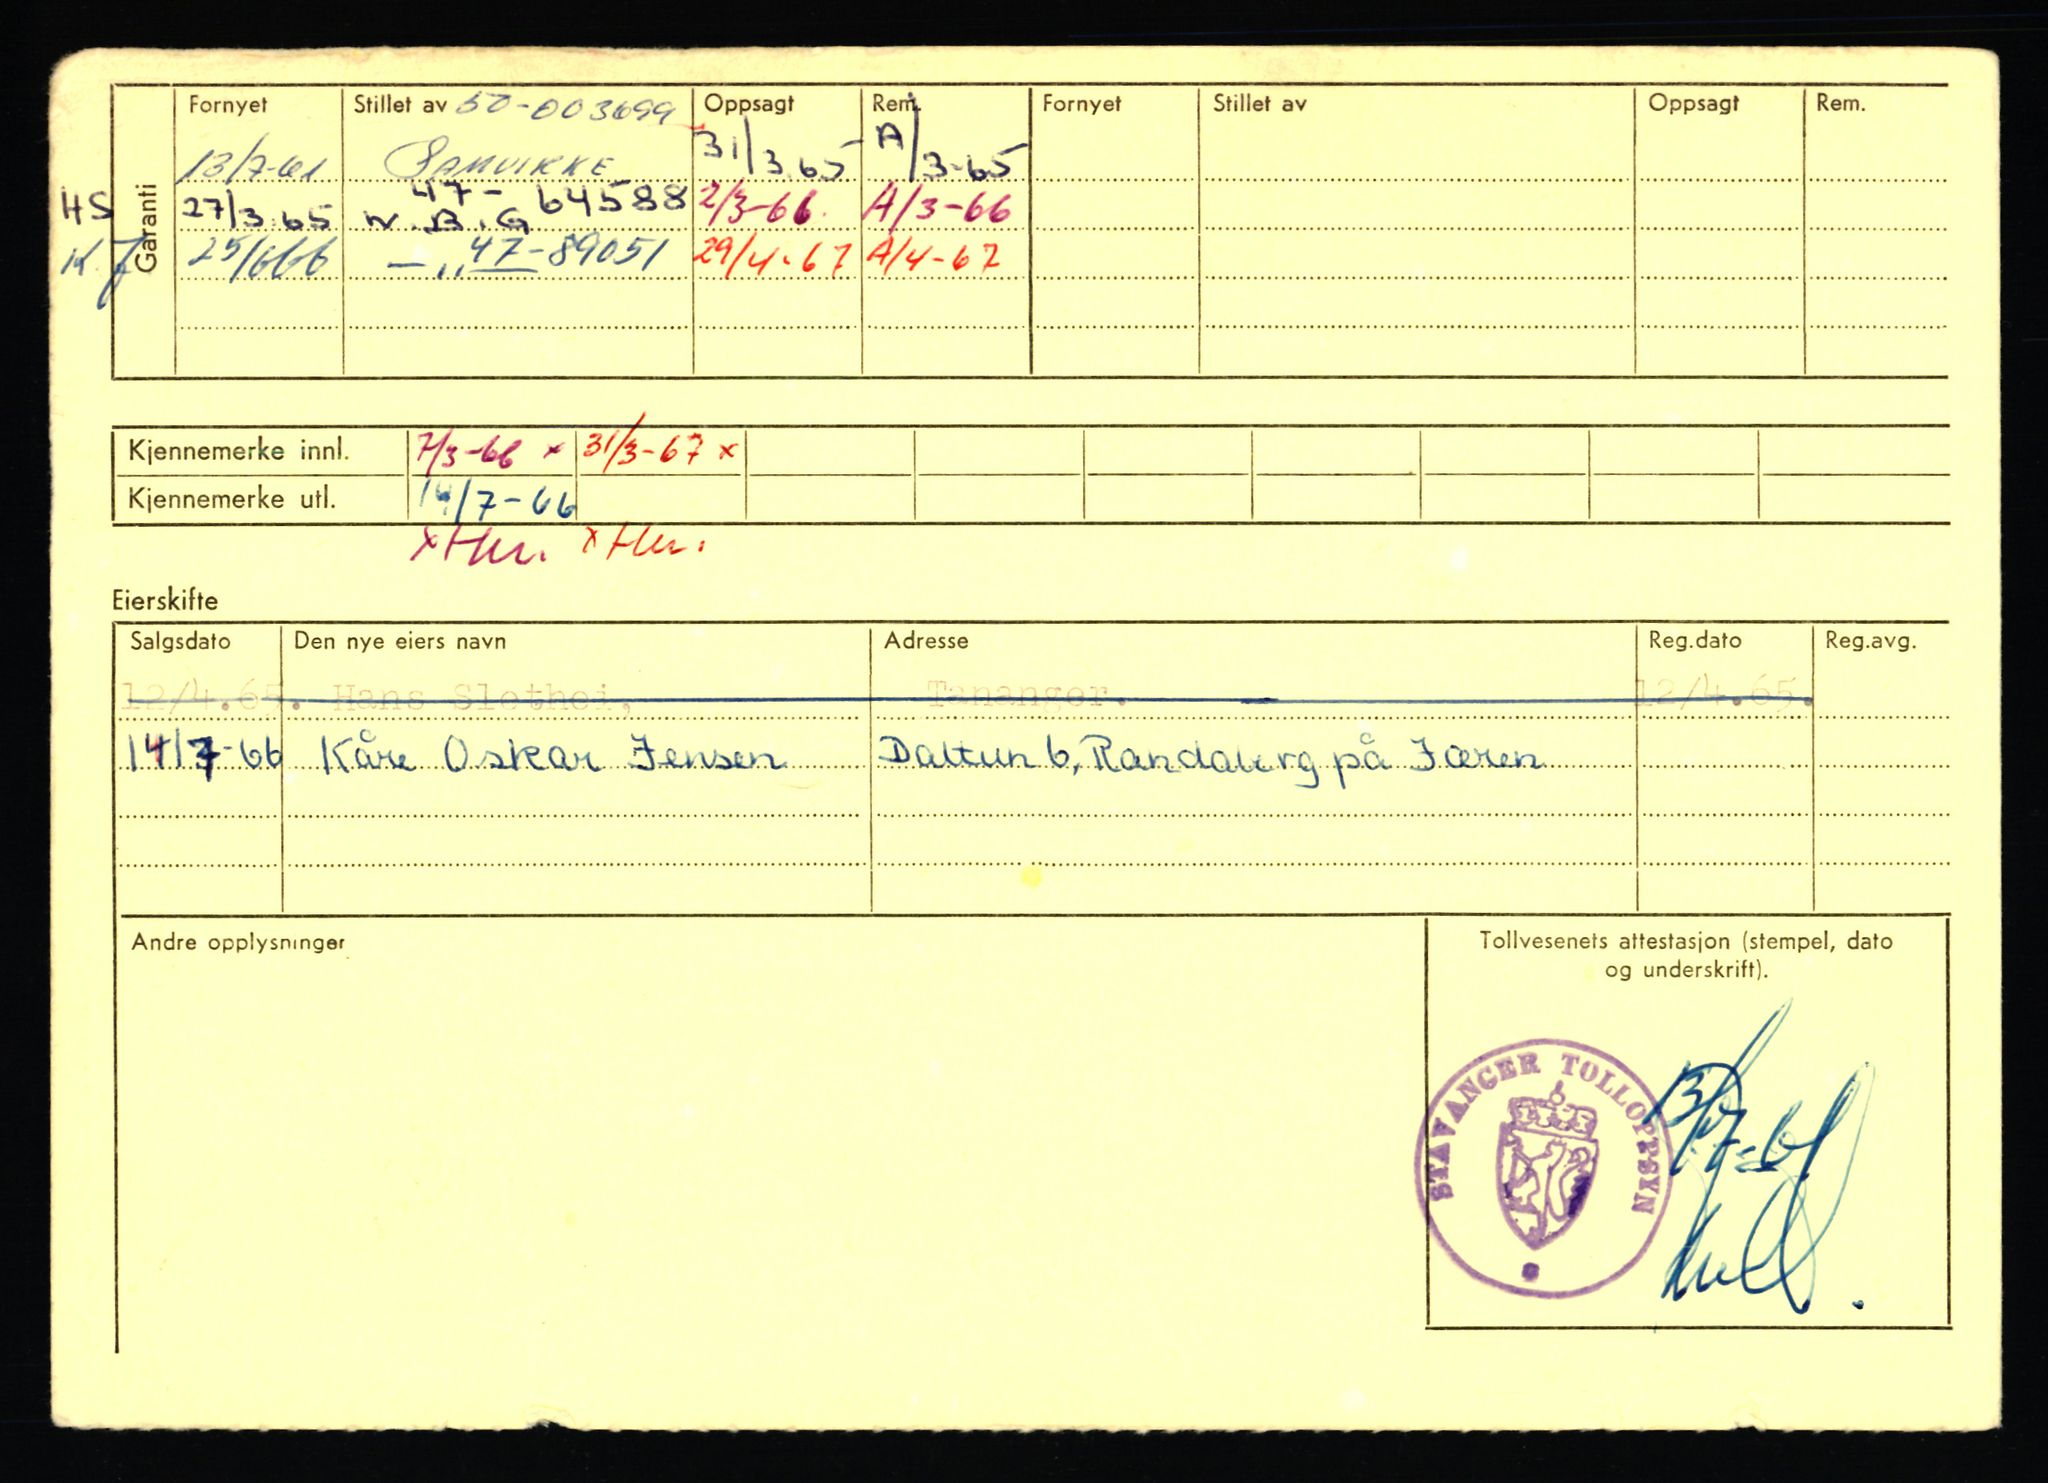 Garanti
Fornyet Stillet av 50-003699 Oppsagt Rem. Fornyet Stillet av Oppsagt Rem.
13/7-61 SAMVIRKE 31/3.65 A/3-65
HS 27/3.65 N.B.G 47-64588 2/3-66. A/3-66
K.J 25/6 66 —„— 47-89051 29/4-67 A/4-67
Kjennemerke innl. 7/3-66 x 31/3-67 x
Kjennemerke utl. 14/7-66
Eierskifte
Salgsdato Den nye eiers navn Adresse Reg.dato Reg.avg.
12/4.65. Hans Slethei, Tananger. 12/4.65.
14/7-66 Kåre Oskar Jensen Daltun 6, Randaberg på Jæren
Andre opplysninger
Tollvesenets attestasjon (stempel, dato
og underskrift).
STAVANGER TOLLOPPSYN
13/7-61